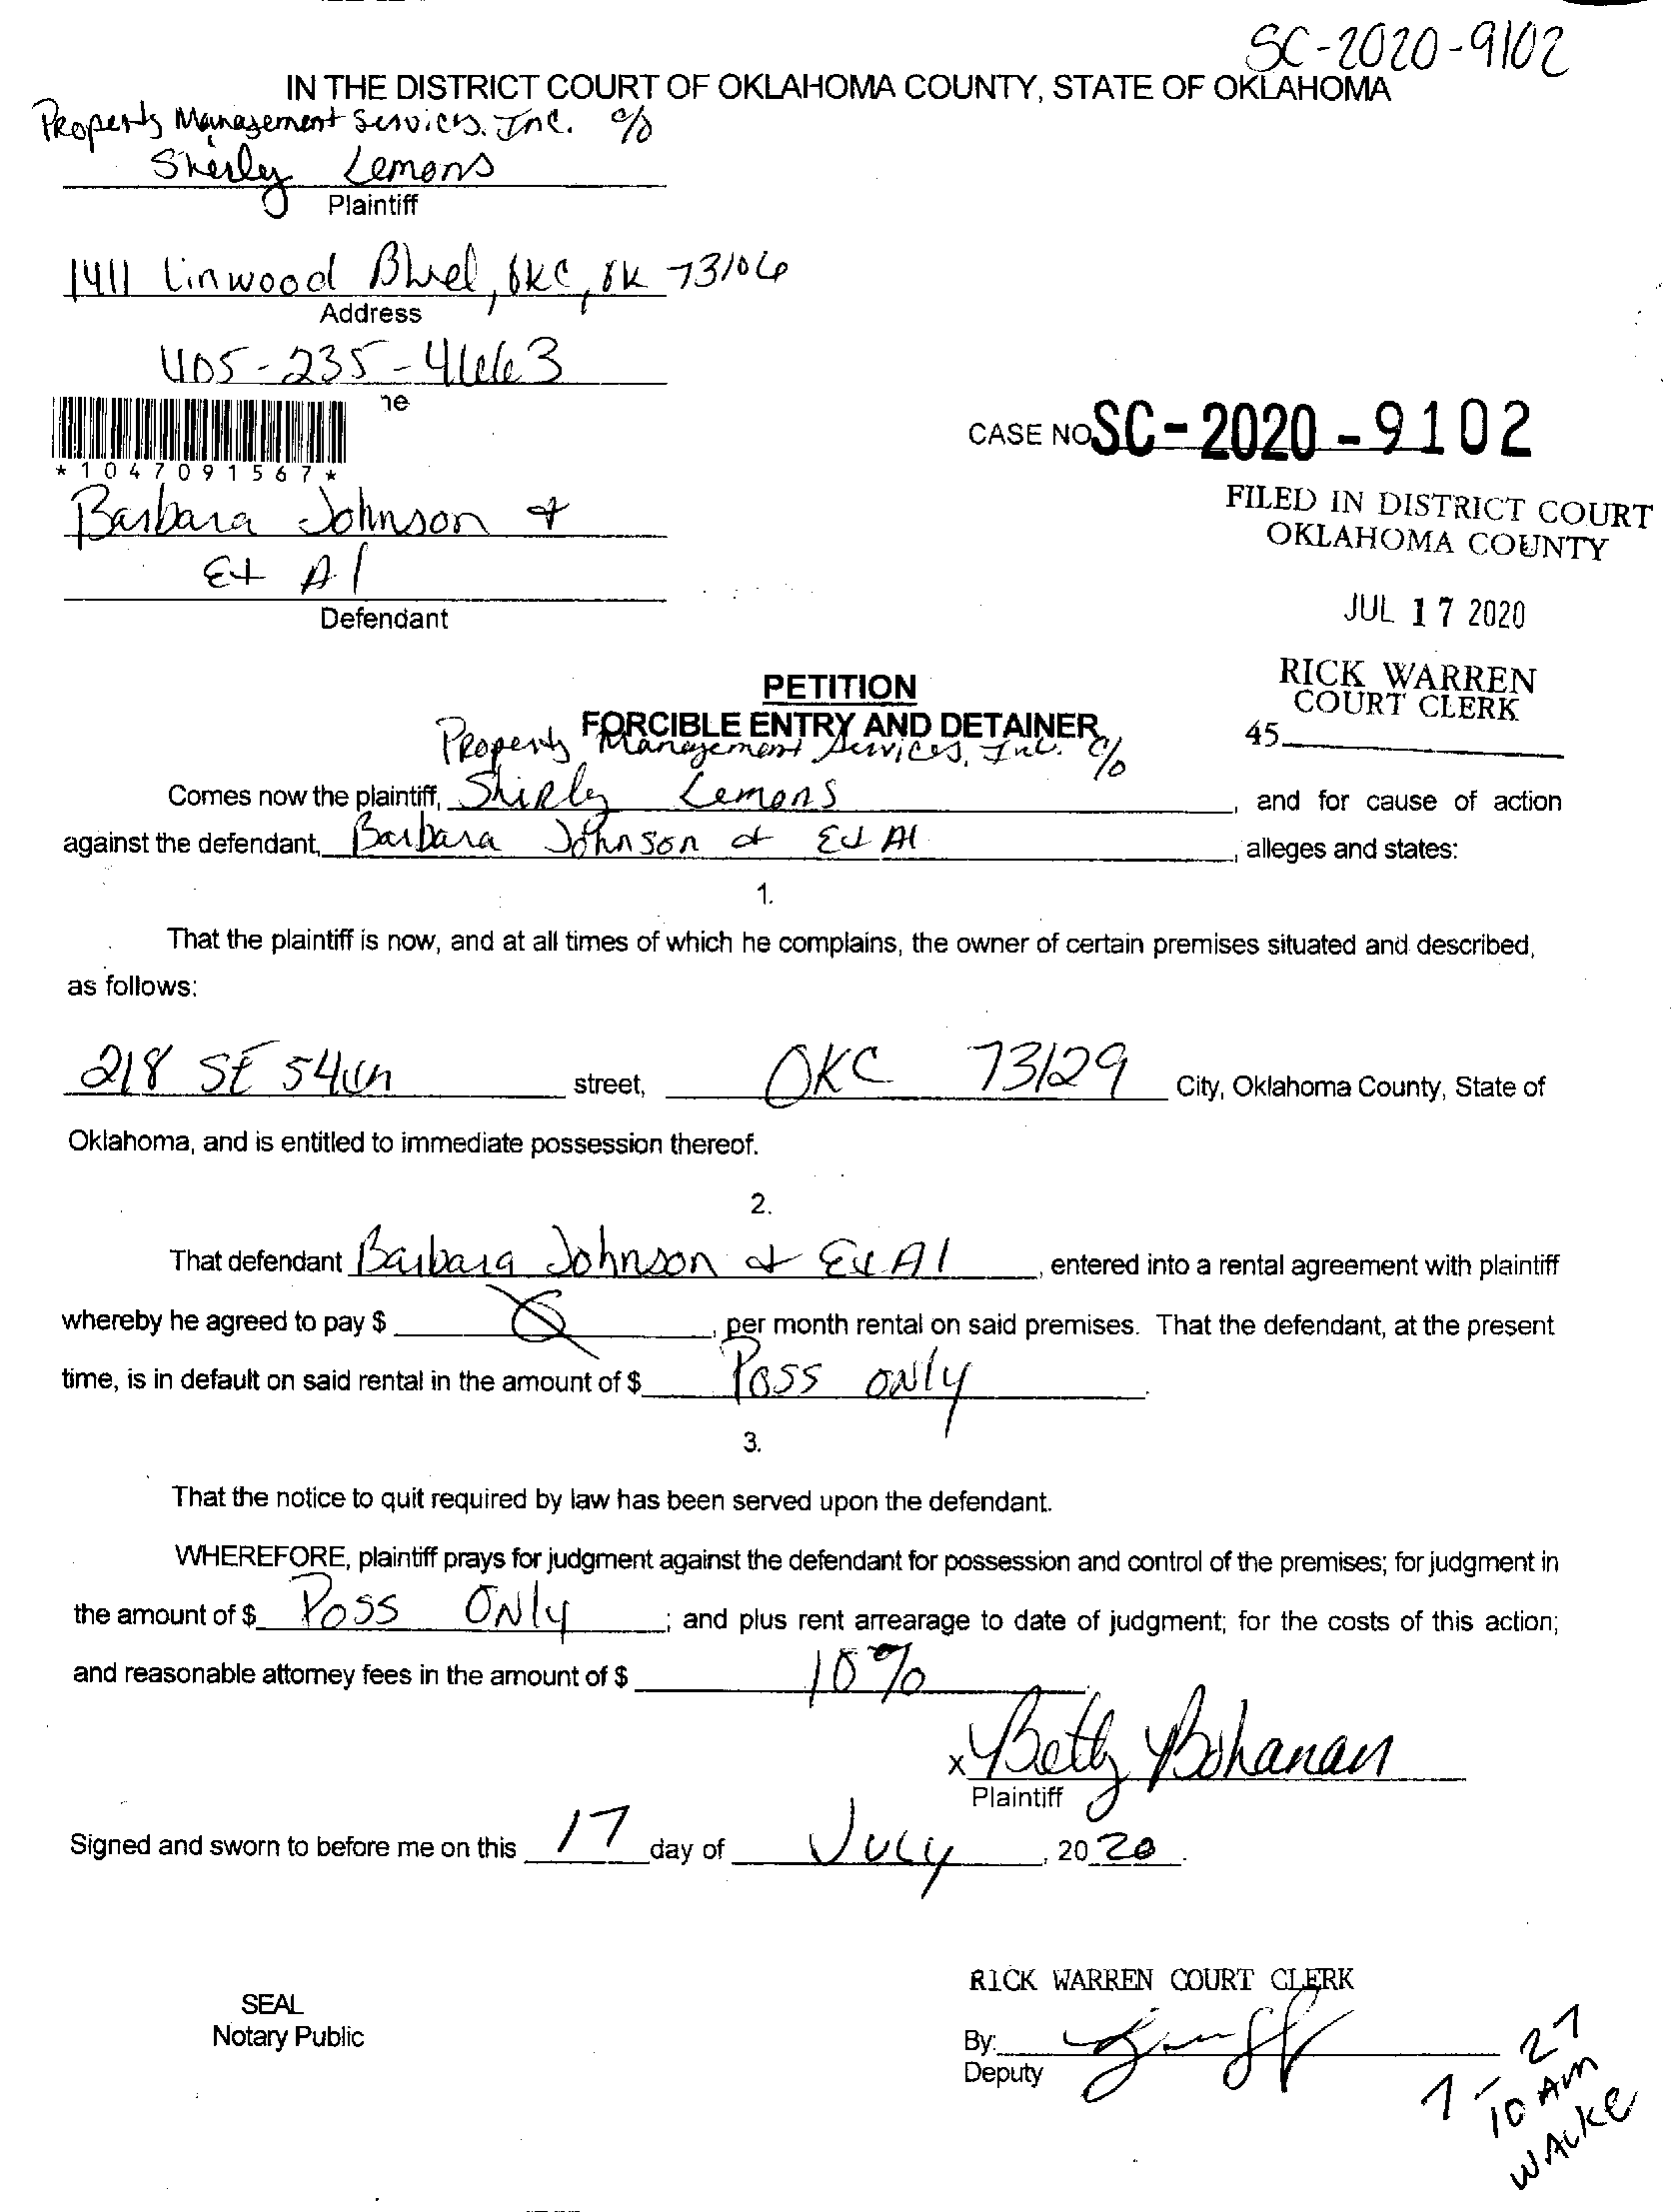 SC-2020-9102
IN THE DISTRICT COURT OF OKLAHOMA COUNTY, STATE OF OKLAHOMA
Property Management Services, Inc. c/o
Shirley Lemons
Plaintiff
1411 Linwood Blvd, OKC, OK 73106
Address
405-235-4663
ne
*1047091567*
CASE NO SC-2020-9102
Barbara Johnson &
Et Al
Defendant
FILED IN DISTRICT COURT
OKLAHOMA COUNTY
JUL 17 2020
RICK WARREN
COURT CLERK
45
PETITION
FORCIBLE ENTRY AND DETAINER
Property Management Services, Inc. c/o
Comes now the plaintiff, Shirley Lemons, and for cause of action
against the defendant, Barbara Johnson & Et Al, alleges and states:
1.
That the plaintiff is now, and at all times of which he complains, the owner of certain premises situated and described,
as follows:
218 SE 54th street, OKC 73129 City, Oklahoma County, State of
Oklahoma, and is entitled to immediate possession thereof.
2.
That defendant Barbara Johnson & Et Al, entered into a rental agreement with plaintiff
whereby he agreed to pay $ , per month rental on said premises. That the defendant, at the present
time, is in default on said rental in the amount of $ Poss ONly.
3.
That the notice to quit required by law has been served upon the defendant.
WHEREFORE, plaintiff prays for judgment against the defendant for possession and control of the premises; for judgment in
the amount of $ Poss ONly; and plus rent arrearage to date of judgment; for the costs of this action;
and reasonable attorney fees in the amount of $ 10%
x Betty Bohanan
Plaintiff
Signed and sworn to before me on this 17 day of July, 2020.
RICK WARREN COURT CLERK
SEAL
Notary Public
By:
Deputy
7-27
10 AM
WALKE